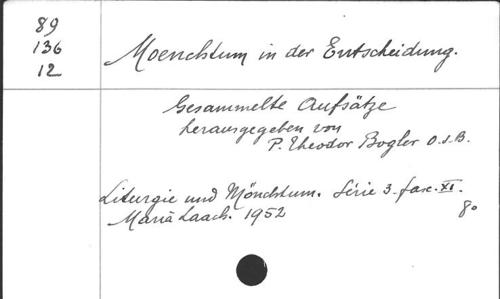 89
136
12
Moenchtum in der Entscheidung.
Gesammelte Aufsätze
herausgegeben von
P. Theodor Bogler O.S.B.
Liturgie und Mönchtum. Série 3. fasc. XI.
Maria Laach. 1952
8o